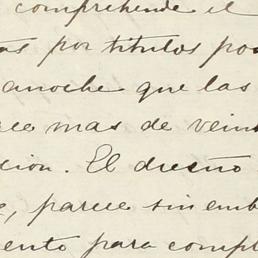 comprehende el
as por titulos po
anoche que las
ce mas de vein
cion. El diseño
, parece sin emb
ento para compl